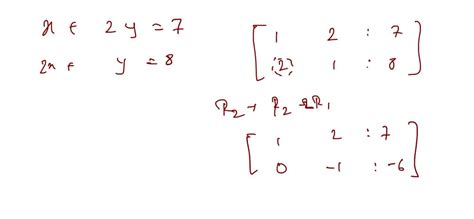 x + 2y = 7
2x + y = 8
[ 1 2 : 7
2 1 : 8 ]
R2 → R2 - 2R1
[ 1 2 : 7
0 -1 : -6 ]